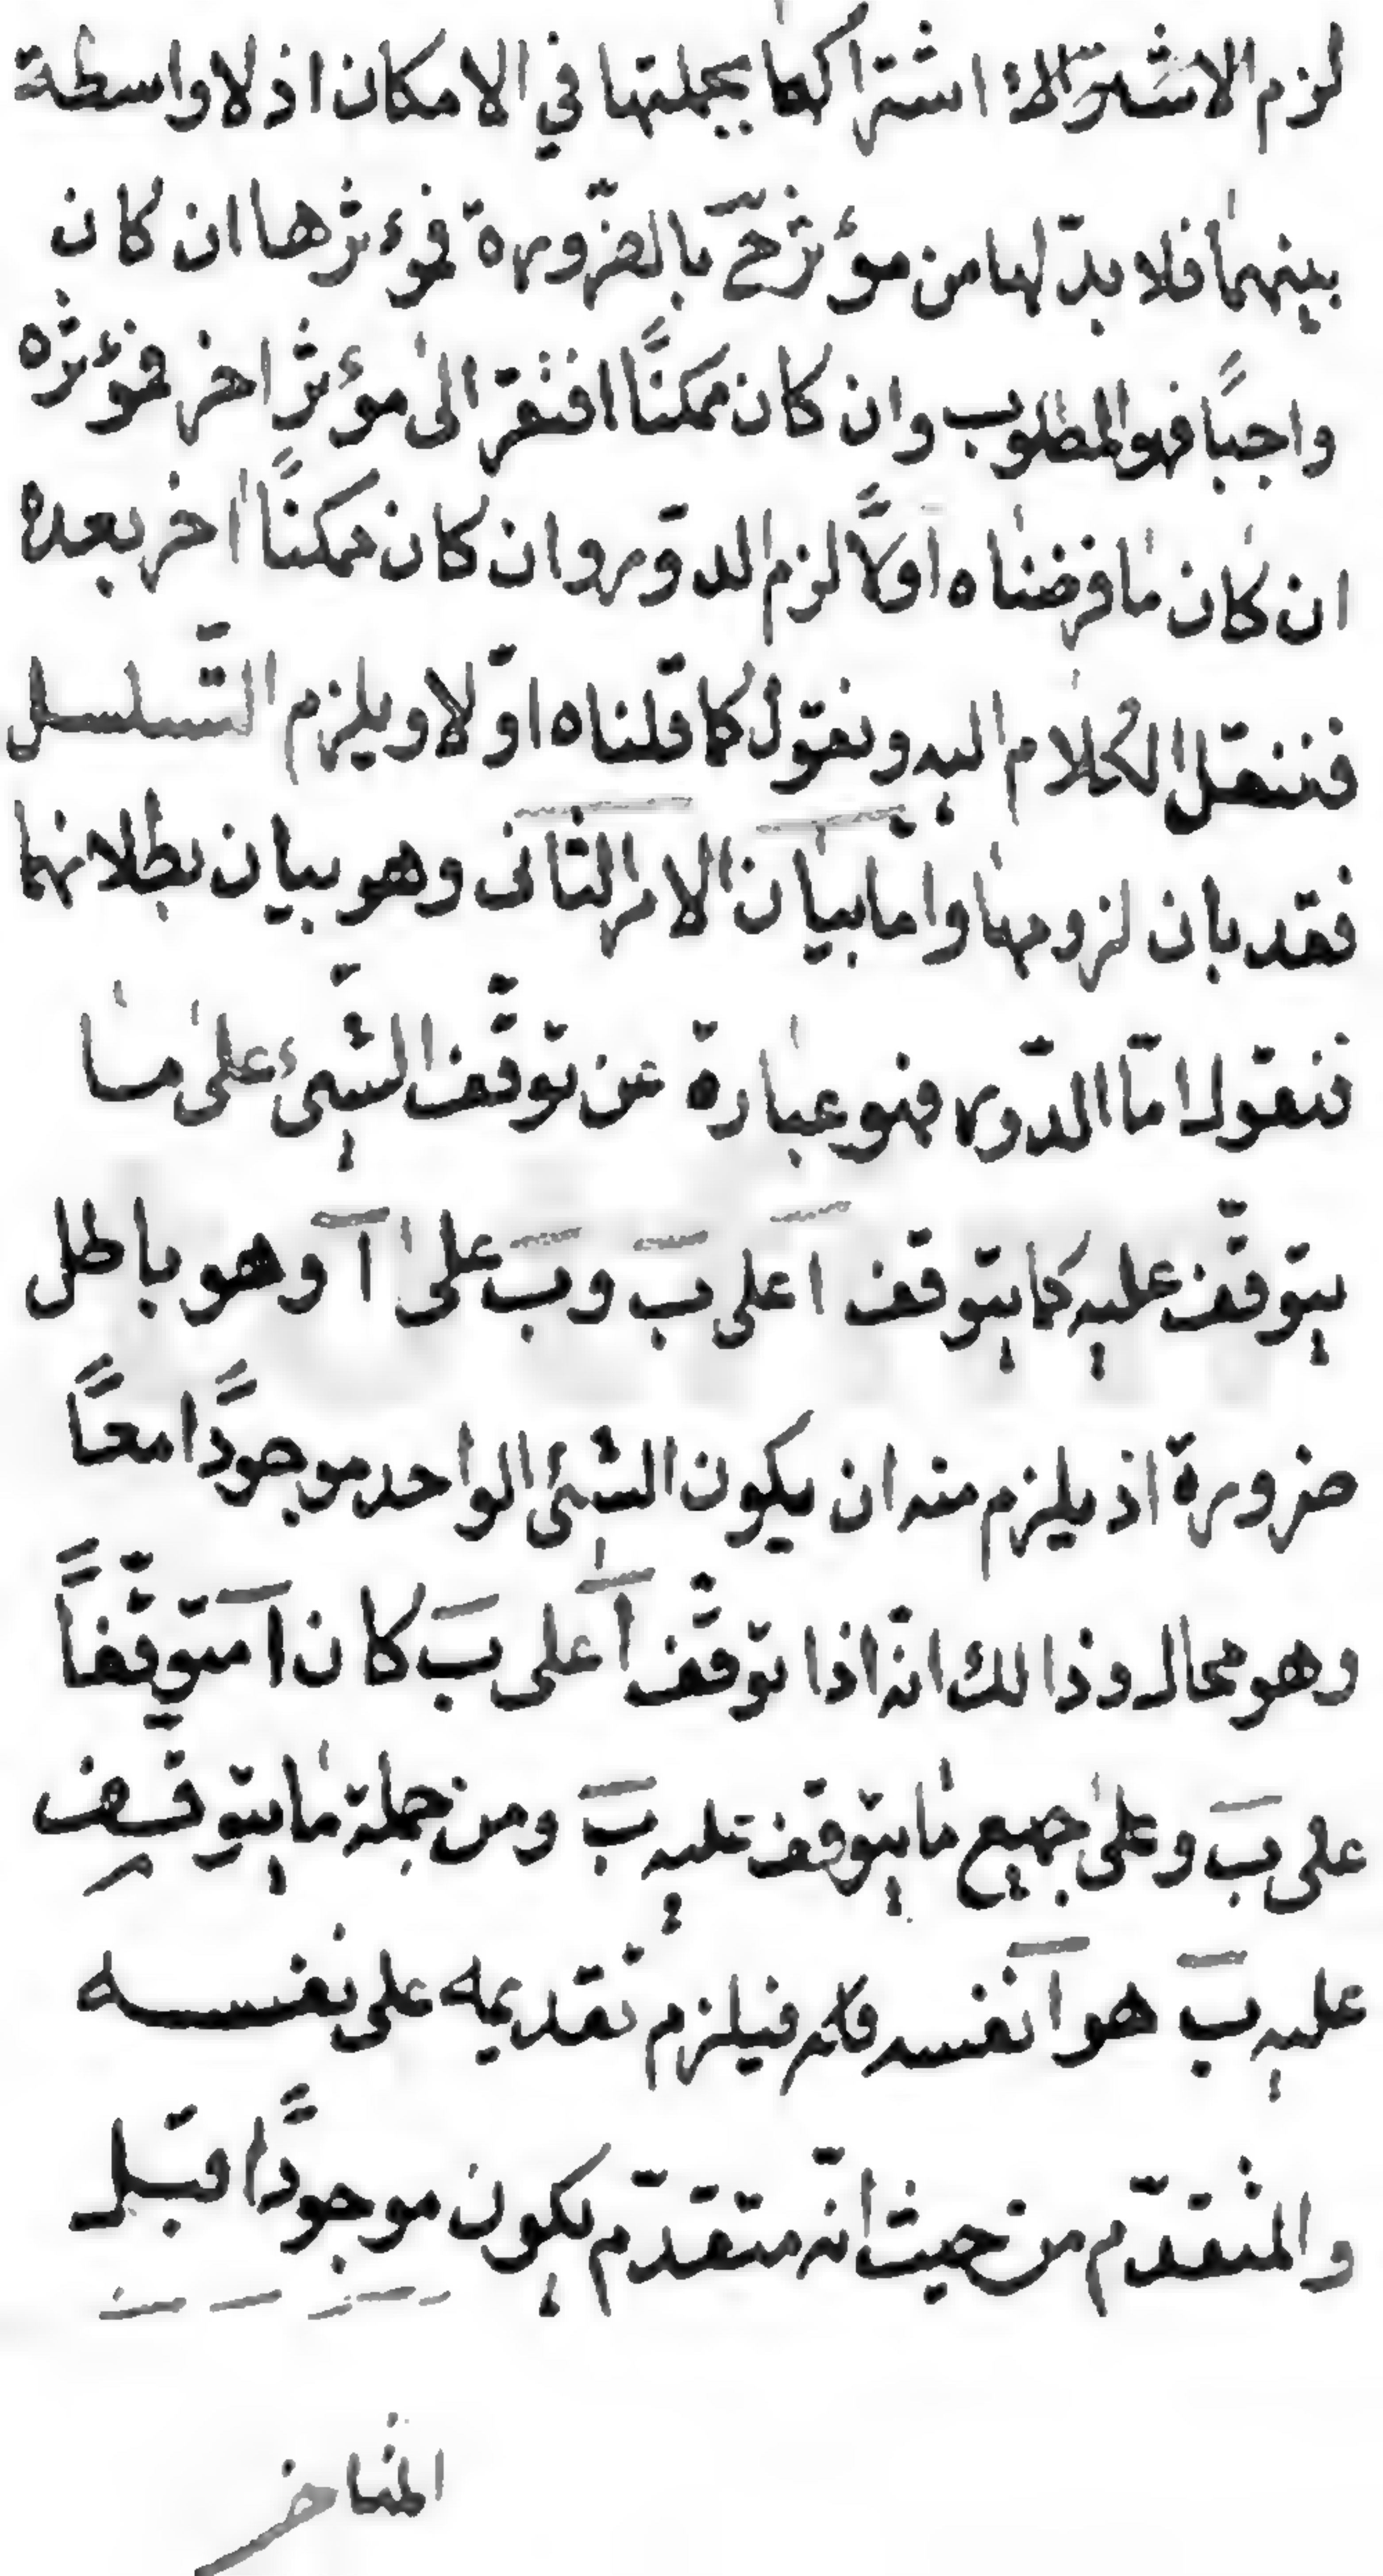 لزم الاشتراك اشتراكها بجملتها في الامكان اذ لا واسطة
بينهما فلا بدّ لها من مؤثر حَ بالضّرورة فمؤثرها ان كان
واجبًا فهو المطلوب وان كان ممكنًا افتقر الى مؤثرٍ اخر فمؤثره
ان كان ما فرضناه اولًا لزم الدّور وان كان ممكنًا اخر بعده
فننقل الكلام اليه ونقول كما قلناه اوّلا ويلزم التّسلسل
فقد بان لزومها واما بيان الامر الثانى وهو بيان بطلانهما
فنقول امّا الدّور فهو عبارة عن توقّف الشّيء على ما
يتوقّف عليه كما يتوقف ا على بَ وبَ على آ وهو باطل
ضرورة اذ يلزم منه ان يكون الشيئ الواحد موجودًا معًا
وهو محال وذالك انّه اذا توقّف آ على بَ كان آ متوقّفاً
على بَ وعلى جميع ما يتوقف عليه بَ ومن جملة ما يتوقف
عليه بَ هو آ نفسه فيلزم تقديمه على نفسه
والمتقدّم من حيث انّه متقدّم يكون موجودًا قبل
المتاخر